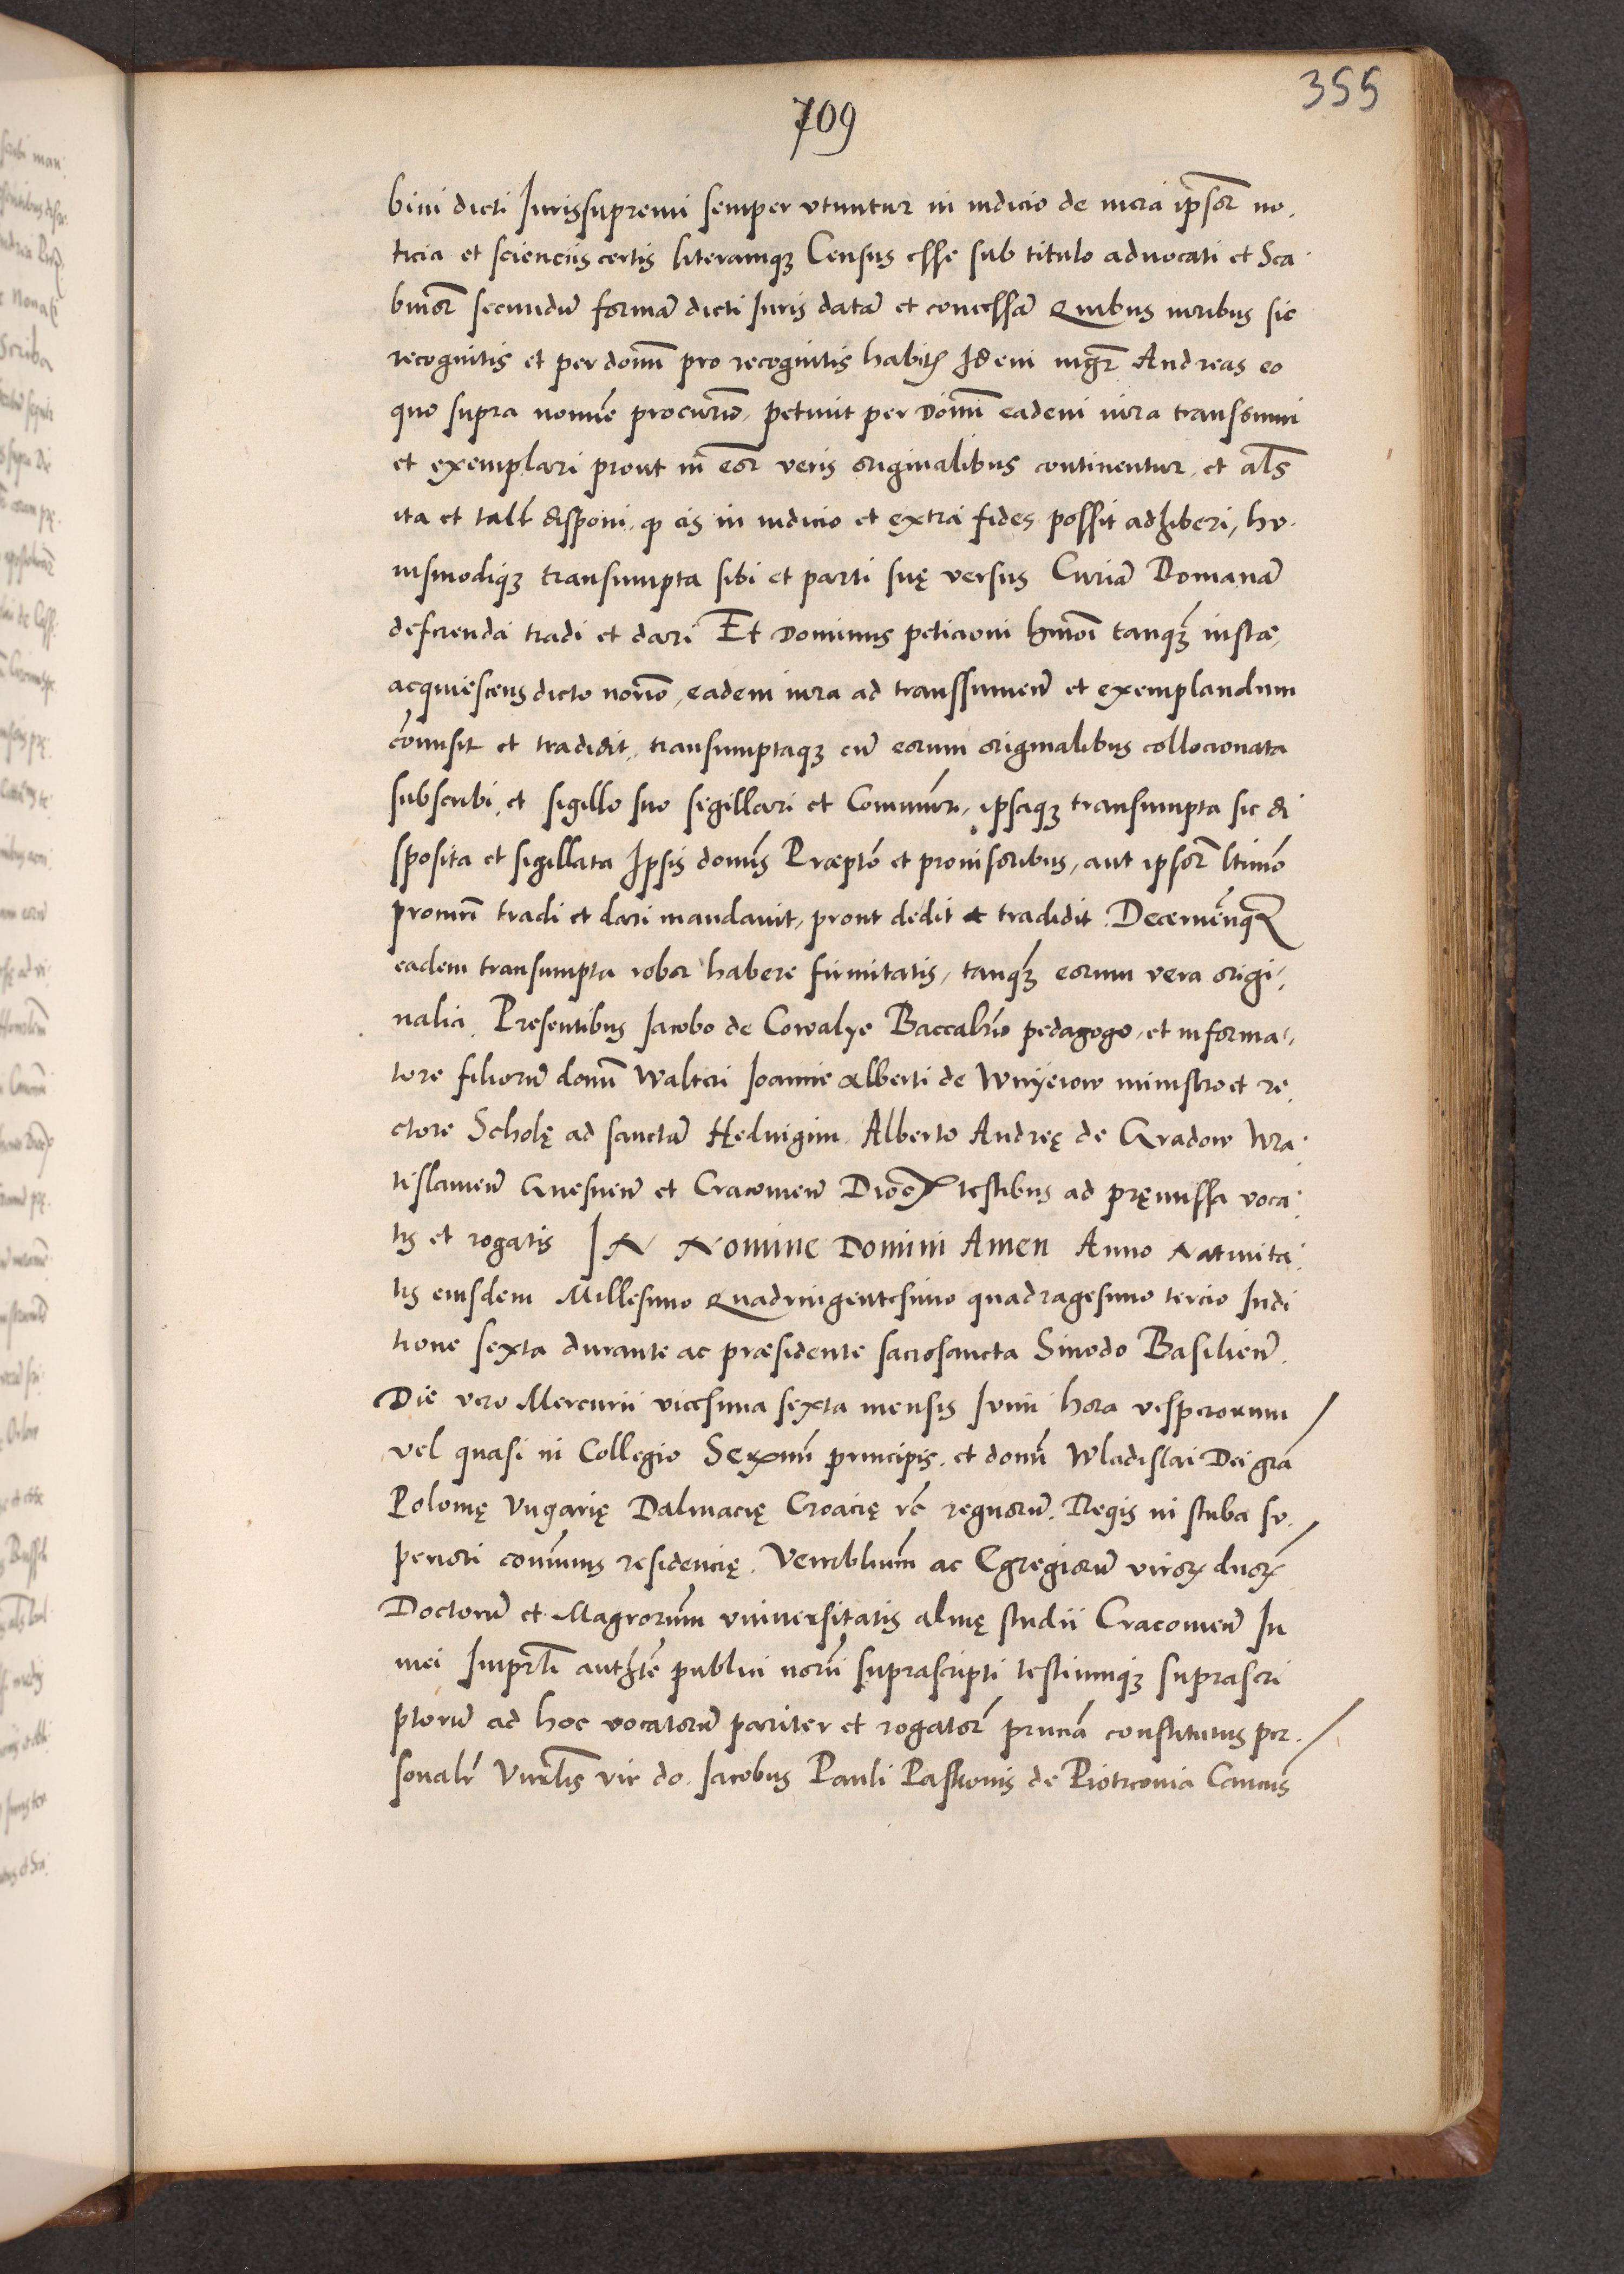 355
709
bini dicti Iurissupremi semper vtuntur in iudicio de mera ip̃sor̃ no.
ticia et scienciis certis literamqꝫ Census esse sub titulo aduocati et Sca
binor̃ secundũ formã dicti Iuris datã et concessã Quibus iuribus sic
recognitis et per domũ pro recognitis habitꝭ Idem mgr̃ Andreas eo
quo supra nomĩe procurio. petiuit per Domũ eadem iura transsumi
et exemplari prout in eor̃ veris originalibus continentur, et al̃s
ita et talr̃ disponi. ꝙ eis in iudicio et extra fides possit adhiberi, hu.
iusmodiqꝫ transumpta sibi et parti suę versus Curiã Romanã
deferenda tradi et dari Et Dominus peticioni hmõi tanqꝫ̃ iustæ,
acquiescens dicto norio, eadem iura ad transsumeñ et exemplandum
cõmisit et tradidit. transumptaqꝫ cũ eorum originalibus collocionata
subscribi, et sigillo suo sigillari et Communiri, ipsaqꝫ transumpta sic di
sposita et sigillata Ipsis domĩs Præptõ et prouisoribus, aut ipsor̃ ltimõ
procuri tradi et dari mandauit, prout dedit et tradidit. Decernenqꝫ
eadem transumpta robor habere firmitatis, tanqꝫ̃ eorum vera origi,
nalia. Presentibus Iacobo de Cowalye Baccalrio pedagogo, et informa,
tore filiorũ domĩ Walteri Ioanne Alberti de Wnyeiow ministro et re
ctore Scholę ad sanctã Heduigim. Alberto Andreę de Gradow Wra
tislauieñ Gnesneñ et Cracouieñ Dioc̃ testibus ad pręmissa voca
tis et rogatis IN Nomine Domini Amen Anno Natiuita
tis eiusdem Millesimo Quadringentesimo quadragesimo tercio Indi
tione sexta durante ac præsidente sacrosancta Sinodo Basilieñ.
Die vero Mercurii vicesima sexta mensis Iunii hora vesperorum
vel quasi in Collegio Serenmĩ principis. et domĩ Wladislai Dei grã
Polonię Vngarię Dalmacię Croacię rc̃ regnorũ. Regis in stuba su.
periori communis residencię. Venerbliũm ac Egregiorũ virorꝫ dnorꝫ
Doctorũ et Magrorum vniuersitatis almę studii Cracouieñ In
mei Imprl̃i authtẽ publici norii suprascripti testiumqꝫ suprascri
ptorũ ad hoc vocatorũ pariter et rogator̃ prncia constitutus per.
sonalr̃ Venerlis vir do. Iacobus Pauli Paskonis de Piotrconia Canous